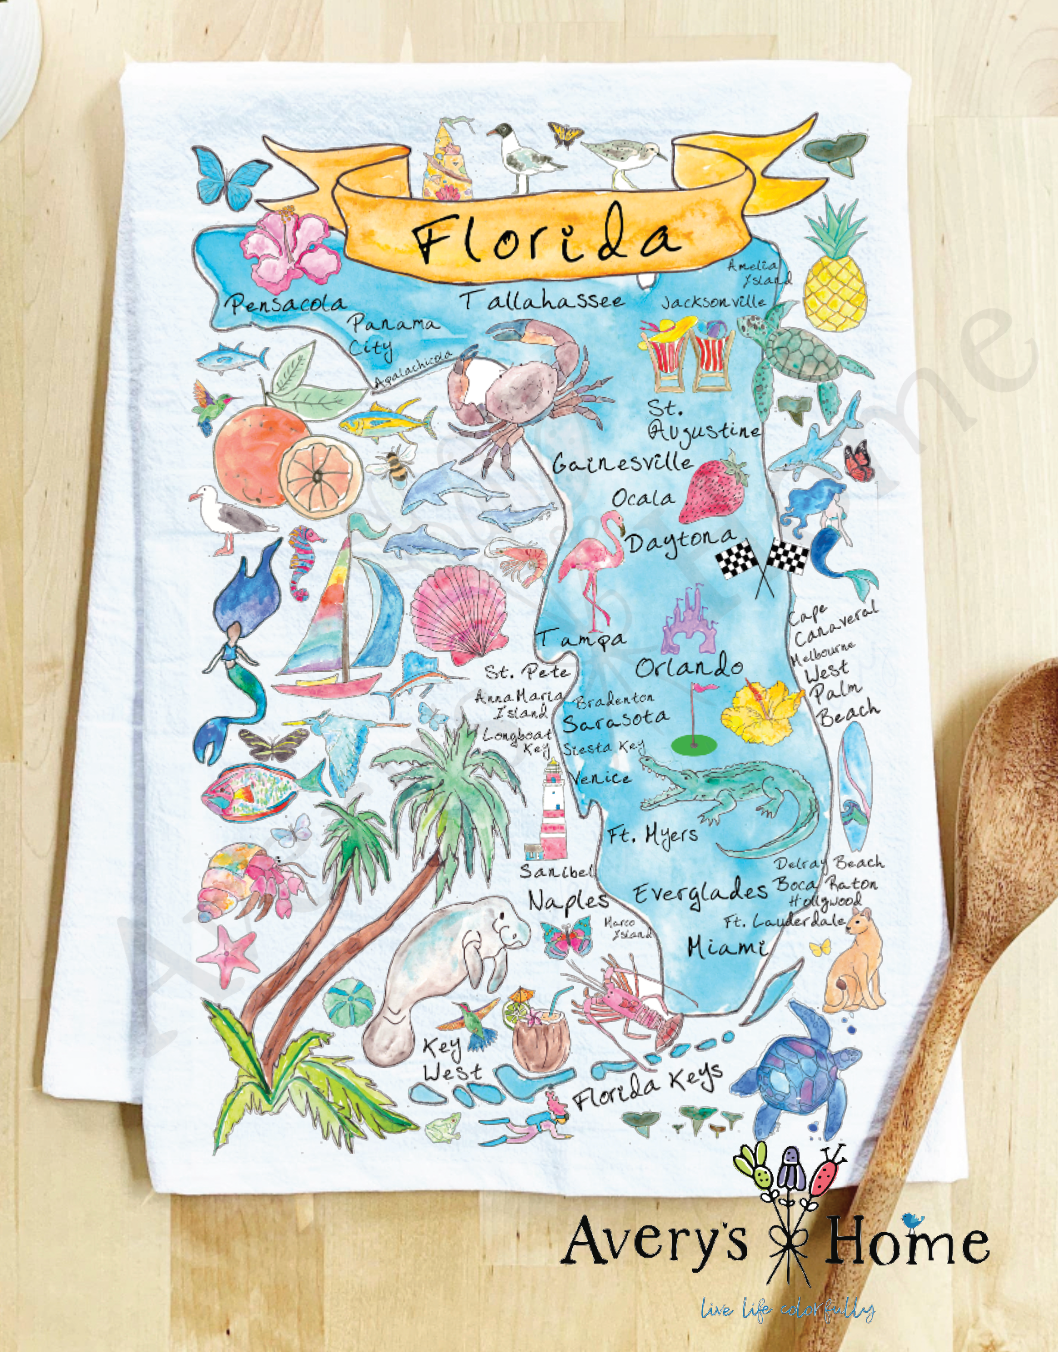 Florida
Amelia
Island
Pensacola
Tallahassee
Jacksonville
Panama
City
Apalachicola
St.
Augustine
Gainesville
Ocala
Daytona
Cape
Canaveral
Tampa
Melbourne
Orlando
West
Palm
Beach
St. Pete
Anna Maria
Island
Bradenton
Sarasota
Longboat
Key
Siesta Key
Venice
Ft. Myers
Delray Beach
Sanibel
Everglades
Boca Raton
Hollywood
Naples
Marco
Island
Ft. Lauderdale
Miami
Key
West
Florida Keys
Avery's Home
live life colorfully
Avery's Home